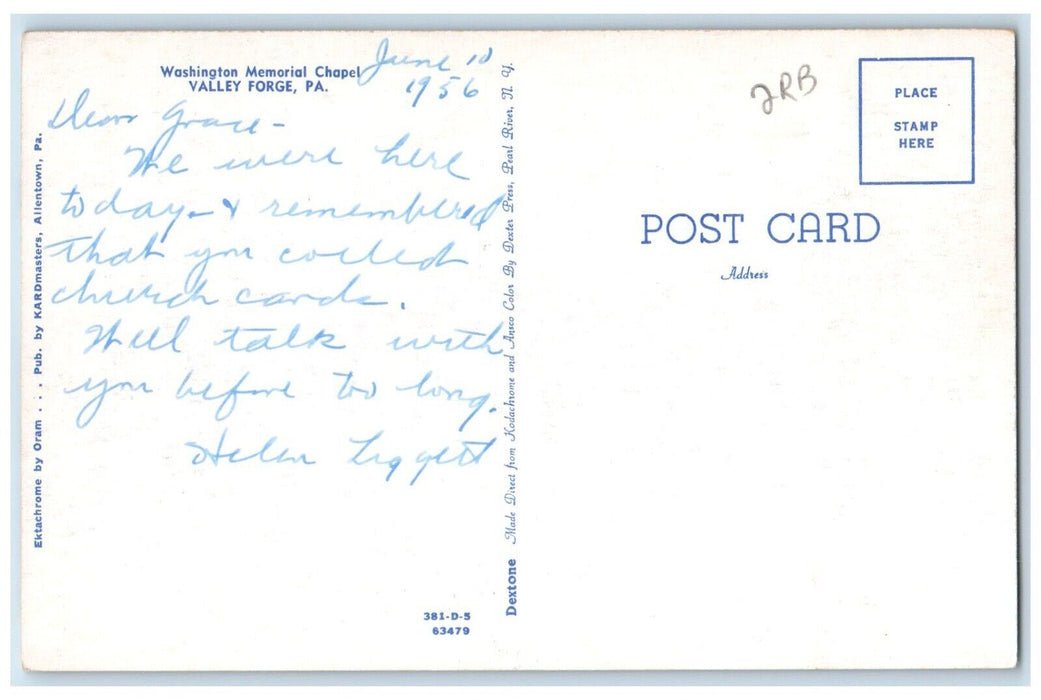 Washington Memorial Chapel
VALLEY FORGE, PA.
June 10
1956
Dear Grace -
We were here
today - & remembered
that you collect
church cards.
Will talk with
you before too long.
Helen Liggett
Ektachrome by Oram . . . Pub. by KARDmasters, Allentown, Pa.
381-D-5
63479
Dextone Made Direct from Kodachrome and Ansco Color By Dexter Press, Pearl River, N. Y.
2RB
PLACE
STAMP
HERE
POST CARD
Address